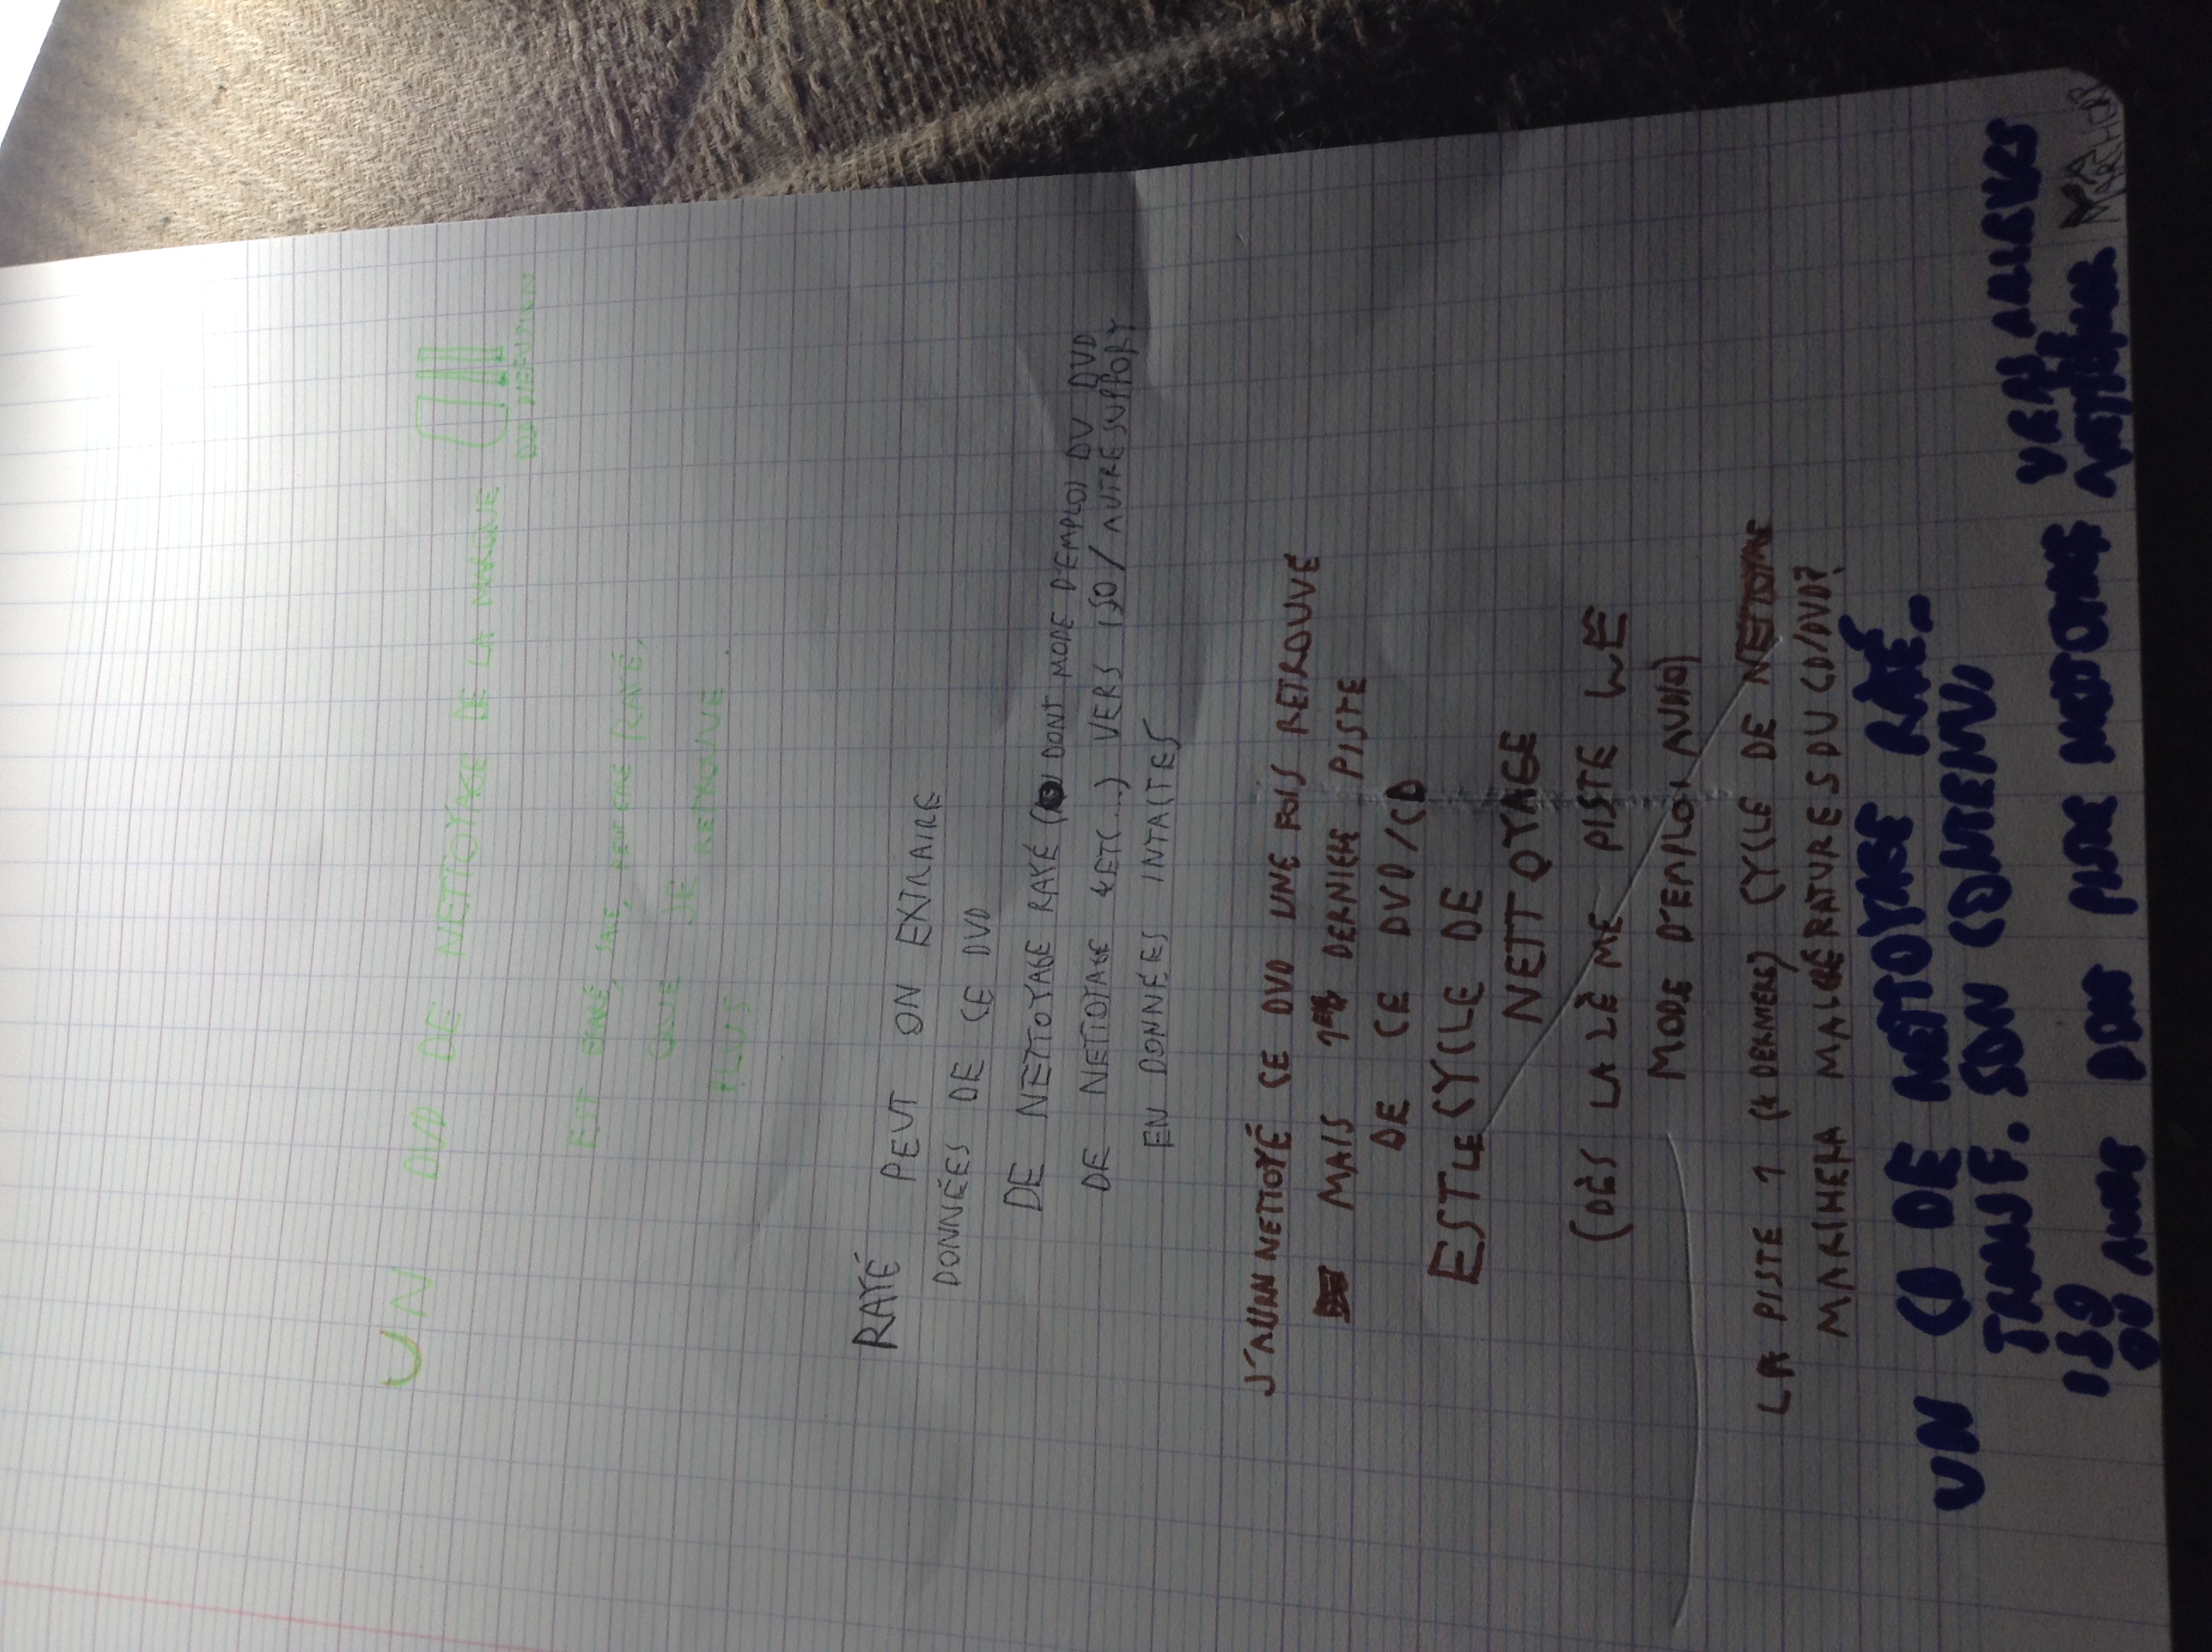 UN DVD DE NETTOYAGE DE LA MARQUE
EST SALE, RAYÉ,
QUE JE RETROUVE
PLUS
RAYÉ PEUT ON EXTRAIRE
DONNÉES DE CE DVD
DE NETTOYAGE RAYÉ ( DONT MODE D'EMPLOI DU DVD
DE NETTOYAGE &ETC...) VERS ISO / AUTRE SUPPORT
EN DONNÉES INTACTES
J'AURAI NETTOYÉ CE DVD UNE FOIS RETROUVÉ
MAIS DERNIERE PISTE
DE CE DVD/CD
EST LE CYCLE DE
NETTOYAGE
(DÈS LA 2ÈME PISTE
MODE D'EMPLOI AUDIO)
LA PISTE 1 (& DERNIERE) CYCLE DE
MARCHERA MALGRÉ RATURES DU CD/DVD?
UN CD DE NETTOYAGE RAYÉ
TRANSF. SON CONTENU
ISO VERS AILLEURS
OU AUTRE DONT PISTE NETTOYAGE
MARCHER